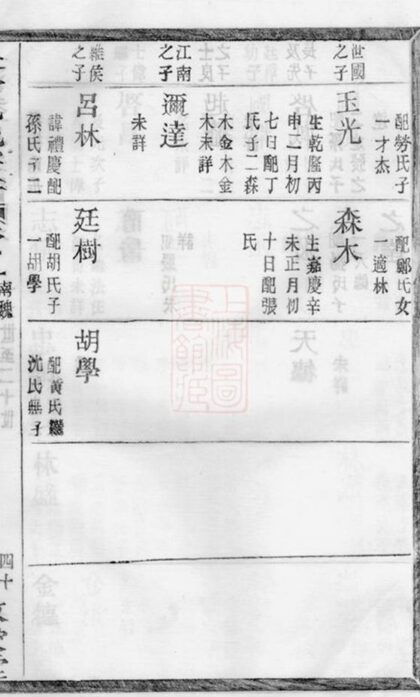 配勞氏子
一才杰
世國
之子
玉光
生乾隆丙
申二月初
七日配丁
氏子二森
木金木金
木未詳
江南
之子
彌達
未詳
維侯
之子
呂林
諱禮慶配
孫氏子二
配鄭氏女
一適林
森木
生嘉慶辛
未正月初
十日配張
氏
廷樹
配胡氏子
一胡學
胡學
配黃氏繼
沈氏無子
南魏
四十
上海圖
書館藏